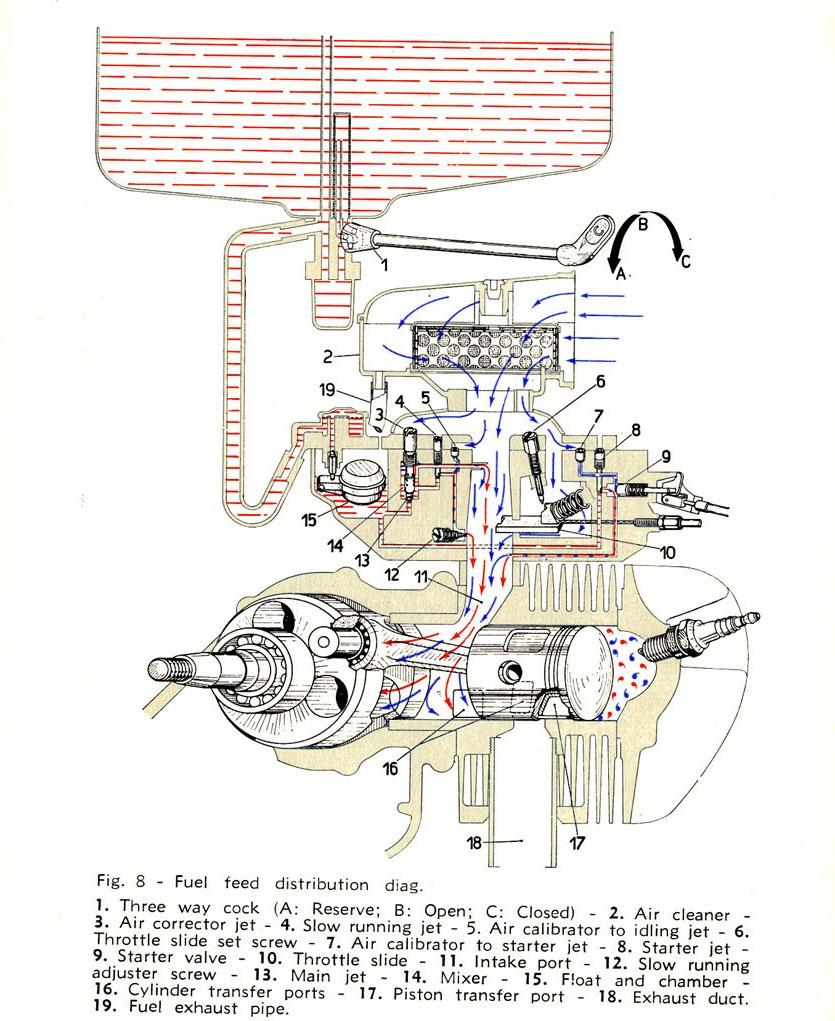 C
B
1
A
C
2
6
19
5
4
7
3
8
9
15
14
13
10
12
11
16
18
17
Fig. 8 - Fuel feed distribution diag.
1. Three way cock (A: Reserve; B: Open; C: Closed) - 2. Air cleaner -
3. Air corrector jet - 4. Slow running jet - 5. Air calibrator to idling jet - 6.
Throttle slide set screw - 7. Air calibrator to starter jet - 8. Starter jet -
9. Starter valve - 10. Throttle slide - 11. Intake port - 12. Slow running
adjuster screw - 13. Main jet - 14. Mixer - 15. Float and chamber -
16. Cylinder transfer ports - 17. Piston transfer port - 18. Exhaust duct.
19. Fuel exhaust pipe.